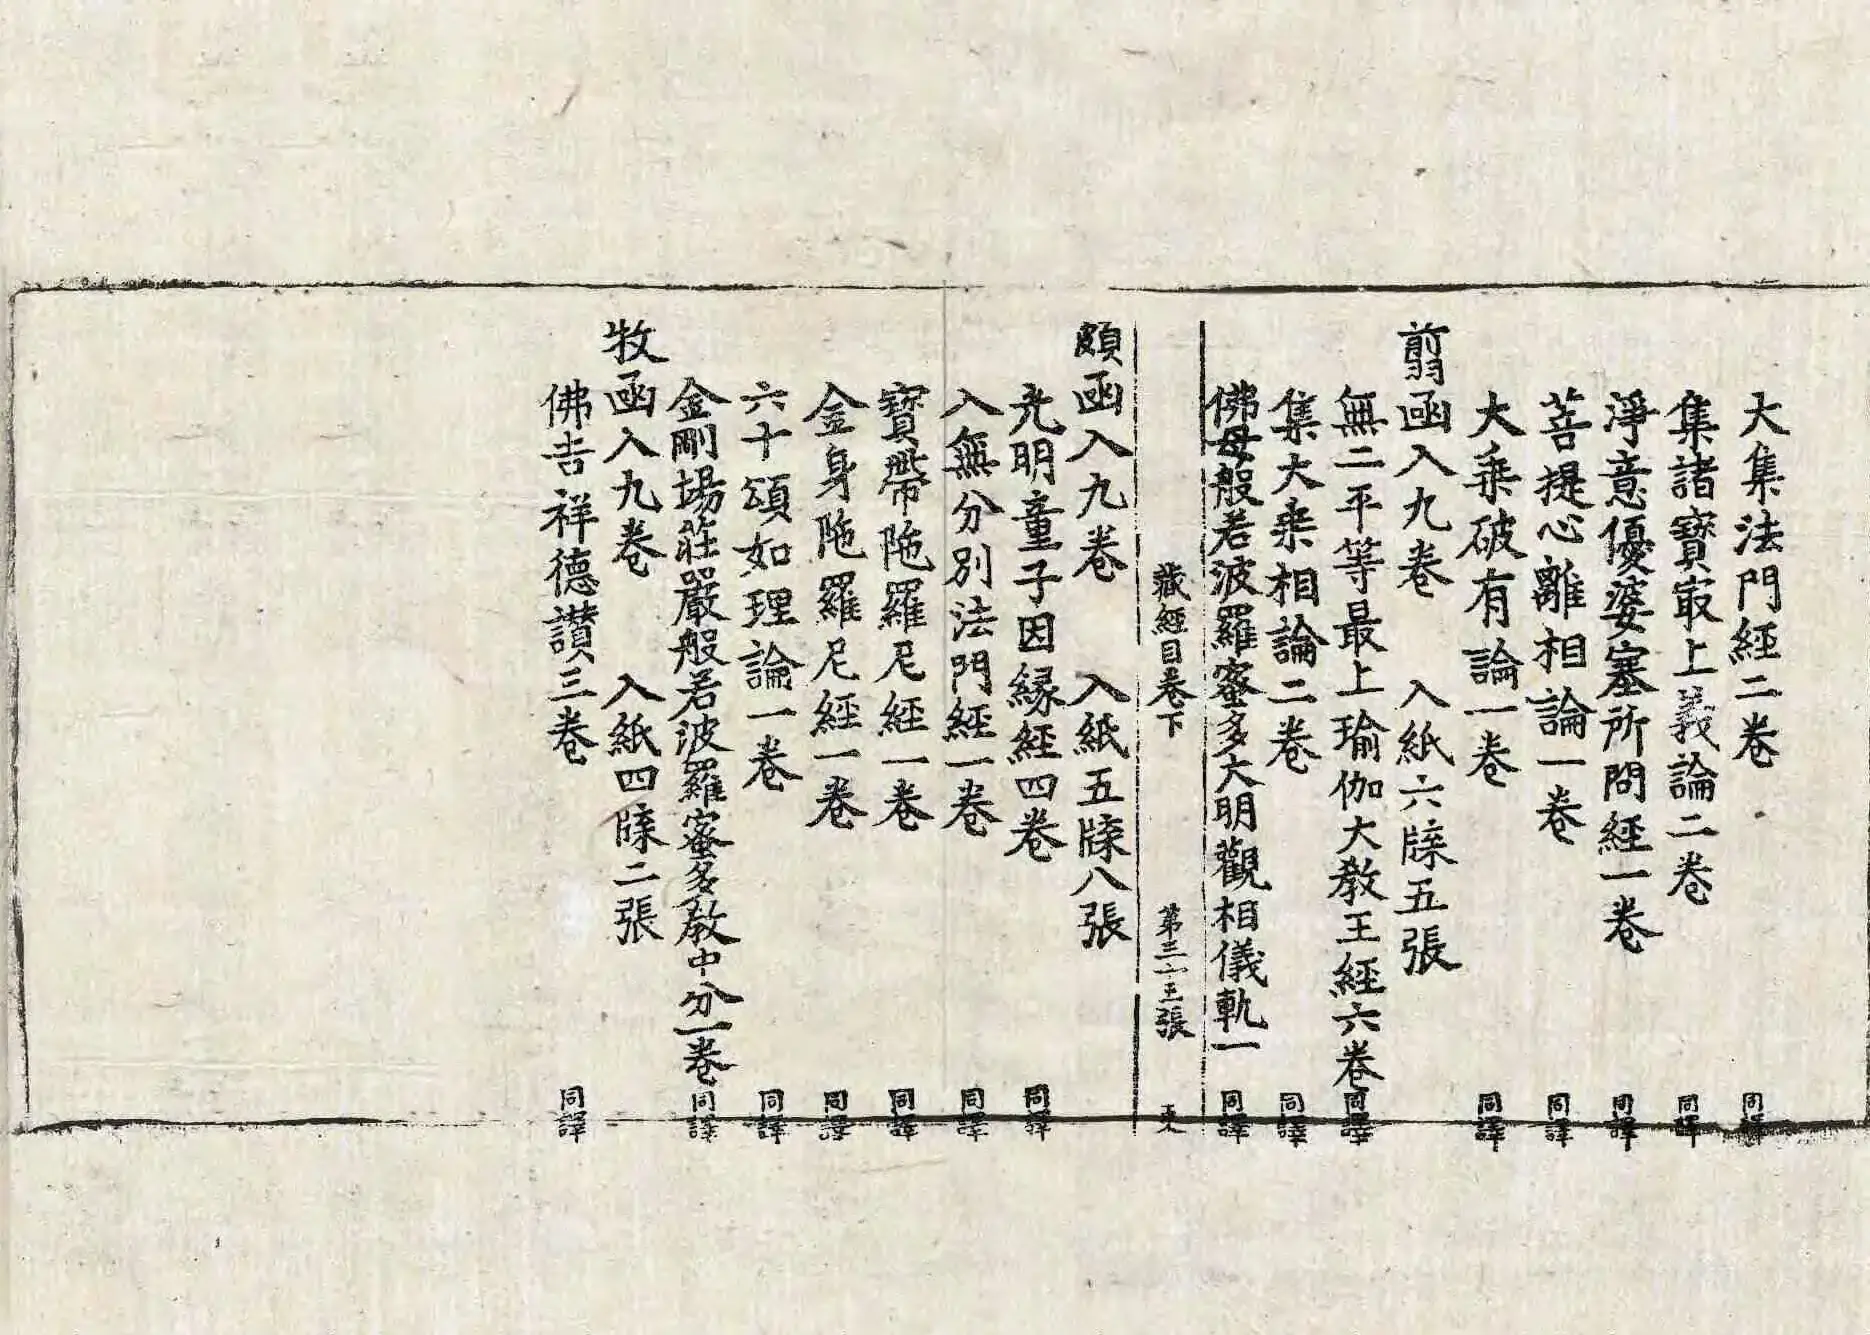 大集法門經二卷 同譯
集諸寶㝡上義論二卷 同譯
淨意優婆塞所問經一卷 同譯
菩提心離相論一卷 同譯
大乘破有論一卷 同譯
翦函入九卷 入紙六牒五張
無二平等最上瑜伽大教王經六卷 同譯
集大乘相論二卷 同譯
佛母般若波羅蜜多大明觀相儀軌一 同譯
藏經目卷下 第三十三張
頗函入九卷 入紙五牒八張
光明童子因緣經四卷 同譯
入無分別法門經一卷 同譯
寶帶陁羅尼經一卷 同譯
金身陁羅尼經一卷 同譯
六十頌如理論一卷 同譯
金剛場莊嚴般若波羅蜜多教中分一卷 同譯
牧函入九卷 入紙四牒二張
佛吉祥德讃三卷 同譯